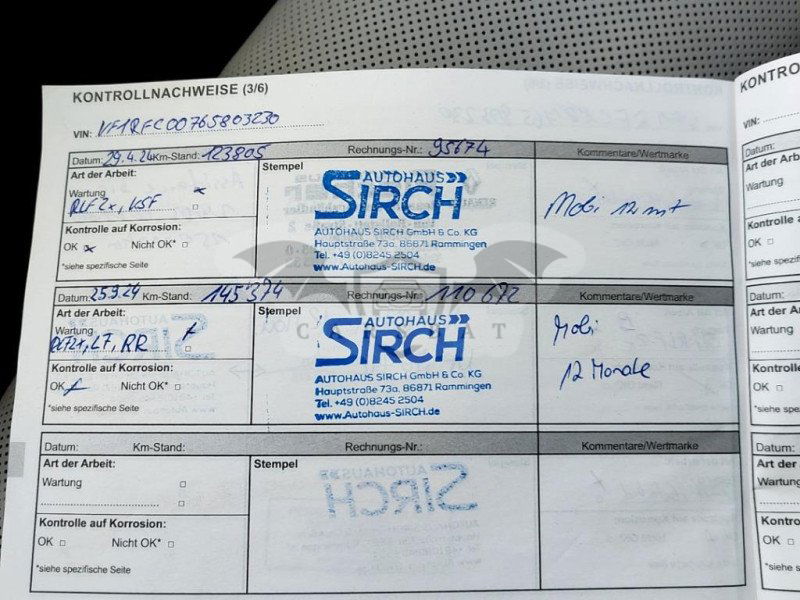 KONTROLLNACHWEISE (3/6)
VIN: VF1RFC00765803230
Datum: 29.4.24 Km-Stand: 123805 Rechnungs-Nr.: 95674 Kommentare/Wertmarke
Art der Arbeit:
Wartung
RLF2x, VSF
Kontrolle auf Korrosion:
OK Nicht OK*
*siehe spezifische Seite
Stempel
AUTOHAUS
SIRCH
AUTOHAUS SIRCH GmbH & Co. KG
Hauptstraße 73a, 86871 Rammingen
Tel. +49 (0)8245 2504
www.Autohaus-SIRCH.de
Mobi 12 mt
Datum: 25.9.24 Km-Stand: 145374 Rechnungs-Nr.: 110672 Kommentare/Wertmarke
Art der Arbeit:
Wartung
RLF2x, LF, RR
Kontrolle auf Korrosion:
OK Nicht OK*
*siehe spezifische Seite
Stempel
AUTOHAUS
SIRCH
AUTOHAUS SIRCH GmbH & Co. KG
Hauptstraße 73a, 86871 Rammingen
Tel. +49 (0)8245 2504
www.Autohaus-SIRCH.de
Mobi
12 Monate
Datum: Km-Stand: Rechnungs-Nr.: Kommentare/Wertmarke
Art der Arbeit:
Wartung
Kontrolle auf Korrosion:
OK Nicht OK*
*siehe spezifische Seite
Stempel
KONTRO
VIN:
Datum:
Art der Arb
Wartung
Kontrolle
OK
*siehe spez
Datum:
Art der A
Wartung
Kontroll
OK
*siehe sp
Datum
Art der
Wartun
Kontro
OK
*siehe